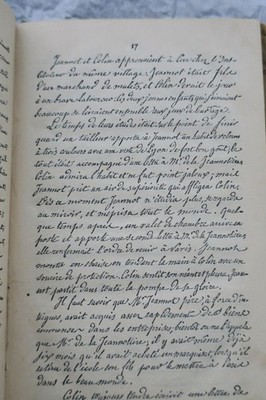 17
Jeannot et Colin apprenaient à lire chez le
du même village. Jeannot était fils
d'un marchand de mulets, et Colin devait le jour
à un brave laboureur; les deux jeunes enfants
beaucoup
Le temps de leurs études était sur le point de finir
quand un tailleur apporta à Jeannot un habit de velours
à trois couleurs avec une veste de Lyon de fort bon goût; le
tout était accompagné d'une lettre à Mr de la Jeannotière.
Colin admira l'habit et ne fut point jaloux; mais
Jeannot prit un air de supériorité qui affligea Colin.
Dès ce moment Jeannot n'étudia plus, se regarda
au miroir, et méprisa tout le monde. Quelque
temps après, un valet de chambre arrive en
poste et apporte une seconde lettre à Mr de la Jeannotière
elle renfermait l'ordre de venir à Paris. Jeannot
monta en chaise en tendant la main à Colin avec un
sourire de protection. Colin sentit son néant et pleura. Jeannot
partit dans toute la pompe de sa gloire.
Il faut savoir que Mr Jeannot père, à force d'in-
trigues, avait acquis assez rapidement des biens
dans les entreprises
que Mr de la Jeannotière; il y avait même déjà
six mois qu'il avait acheté un marquisat, lorsqu'il
retira de l'école son fils pour le mettre à Paris
dans le beau monde.
Colin toujours tendre écrivit une lettre de